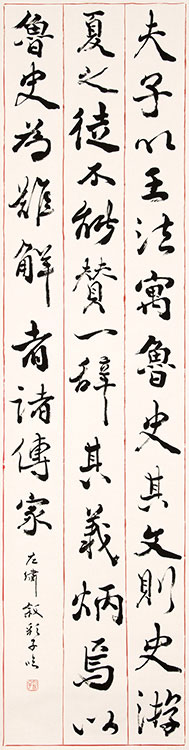 夫子以王法寓魯史其文則史游
夏之徒不能贊一辭其義炳焉以
魯史為難解者諸傳家
左繡敘